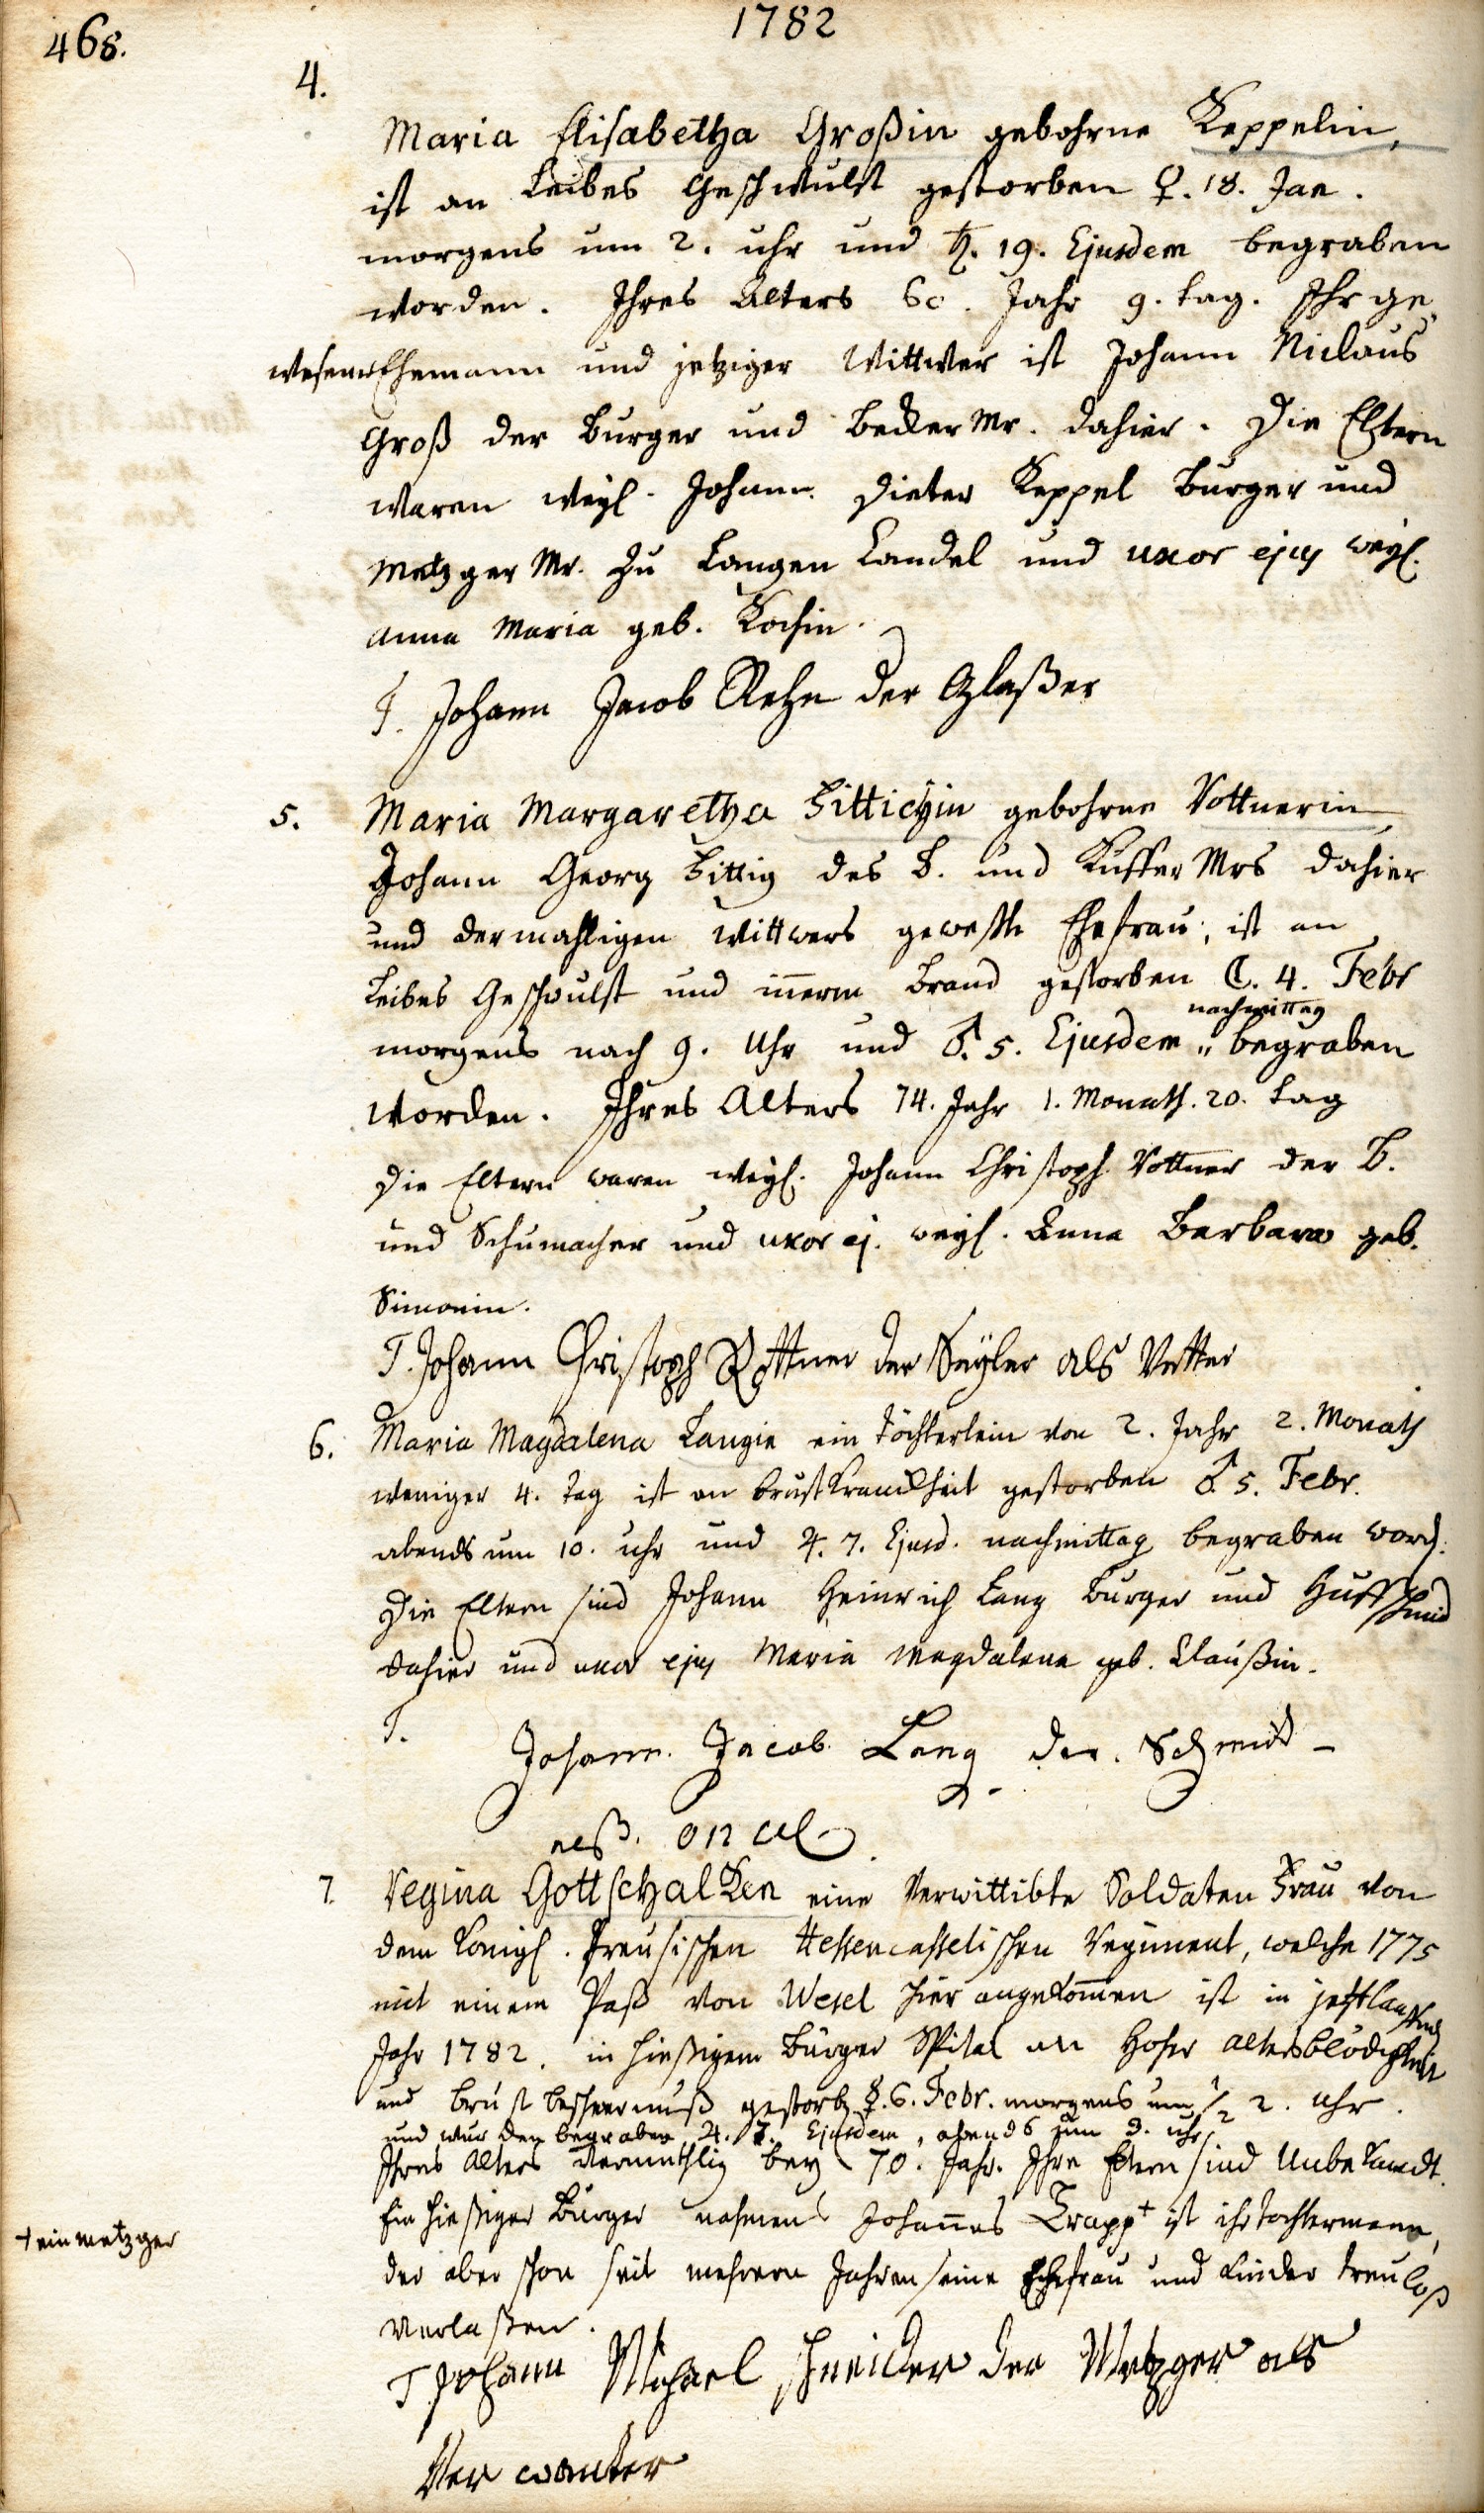 468.
1782
4.
Maria Elisabetha Großin gebohrne Keppelin,
ist an Leibes Geschwulst gestorben ♀. 18. Jan.
morgens um 2. uhr und ♄. 19. Ejusdem begraben
worden. Ihres Alters 60. Jahr 9. tag. Ihr ge„
wesener Ehemann und jetziger Wittwer ist Johann Niclaus
Groß der Burger und Becker Mr. dahier. Die Eltern
waren weyl. Johann Dieter Keppel Burger und
Metzger Mr. zu Langen Candel und uxor ejus weyl.
Anna Maria geb. Kochin.
T. Johann Jacob Rehn der Glaßer
5. Maria Margaretha Hittichin gebohrne Vottnerin,
Johann Georg Hittig des B. und Küffer Mrs dahier
und dermahligen Wittwers geweste Ehefrau, ist an
Leibes Geschwulst und inern Brand gestorben ☾. 4. Febr
morgens nach 9. Uhr und ♂. 5. Ejusdem „ nachmittag begraben
worden. Ihres Alters 74. Jahr 1. Monath. 20. tag
Die Eltern waren weyl. Johann Christoph Vottner der B.
und Schumacher und uxor ej. weyl. Anna Barbara geb.
Simonin.
T. Johann Christoph Rottner der Seyler als Vetter
6. Maria Magdalena Langin ein töchterlein von 2. Jahr 2. Monath
weniger 4. Tag ist an brustkranckheit gestorben ♂. 5. Febr.
abends um 10. uhr und ♃. 7. Ejusd. nachmittag begraben word.
Die Eltern sind Johann Heinrich Lang Burger und Huffschmid
dahier und uxor ejus Maria Magdalena geb. Claußin.
T.
Johann Jacob Lang der Schmid
als oncel
7. Regina Gottschalken eine Verwittibte Soldaten Frau von
dem Königl. Preusischen Hessencasselischen Regiment, welche 1775
mit einem Paß von Wesel hier angekomen ist in jetztlauffend
Jahr 1782. in hießigem Burger Spital an hoher altersblödigkeit
und brust beschwernuß gestorb. ☿. 6. Febr. morgens um ½ 2. uhr.
und wurden begraben ♃. 7. Ejusdem, abends um 3. uhr
Ihres Alters vermuthlig bey 70. Jahr. Ihre Eltern sind Unbekandt.
Ein hießiger Burger nahmens Johannes Trapp + ist ihr tochtermann,
+ ein metzger
der aber schon seit mehrern Jahren seine Ehefrau und Kinder treuloß
verlaßen.
T Johann Michael schneider der Metzger als
Ver wanter